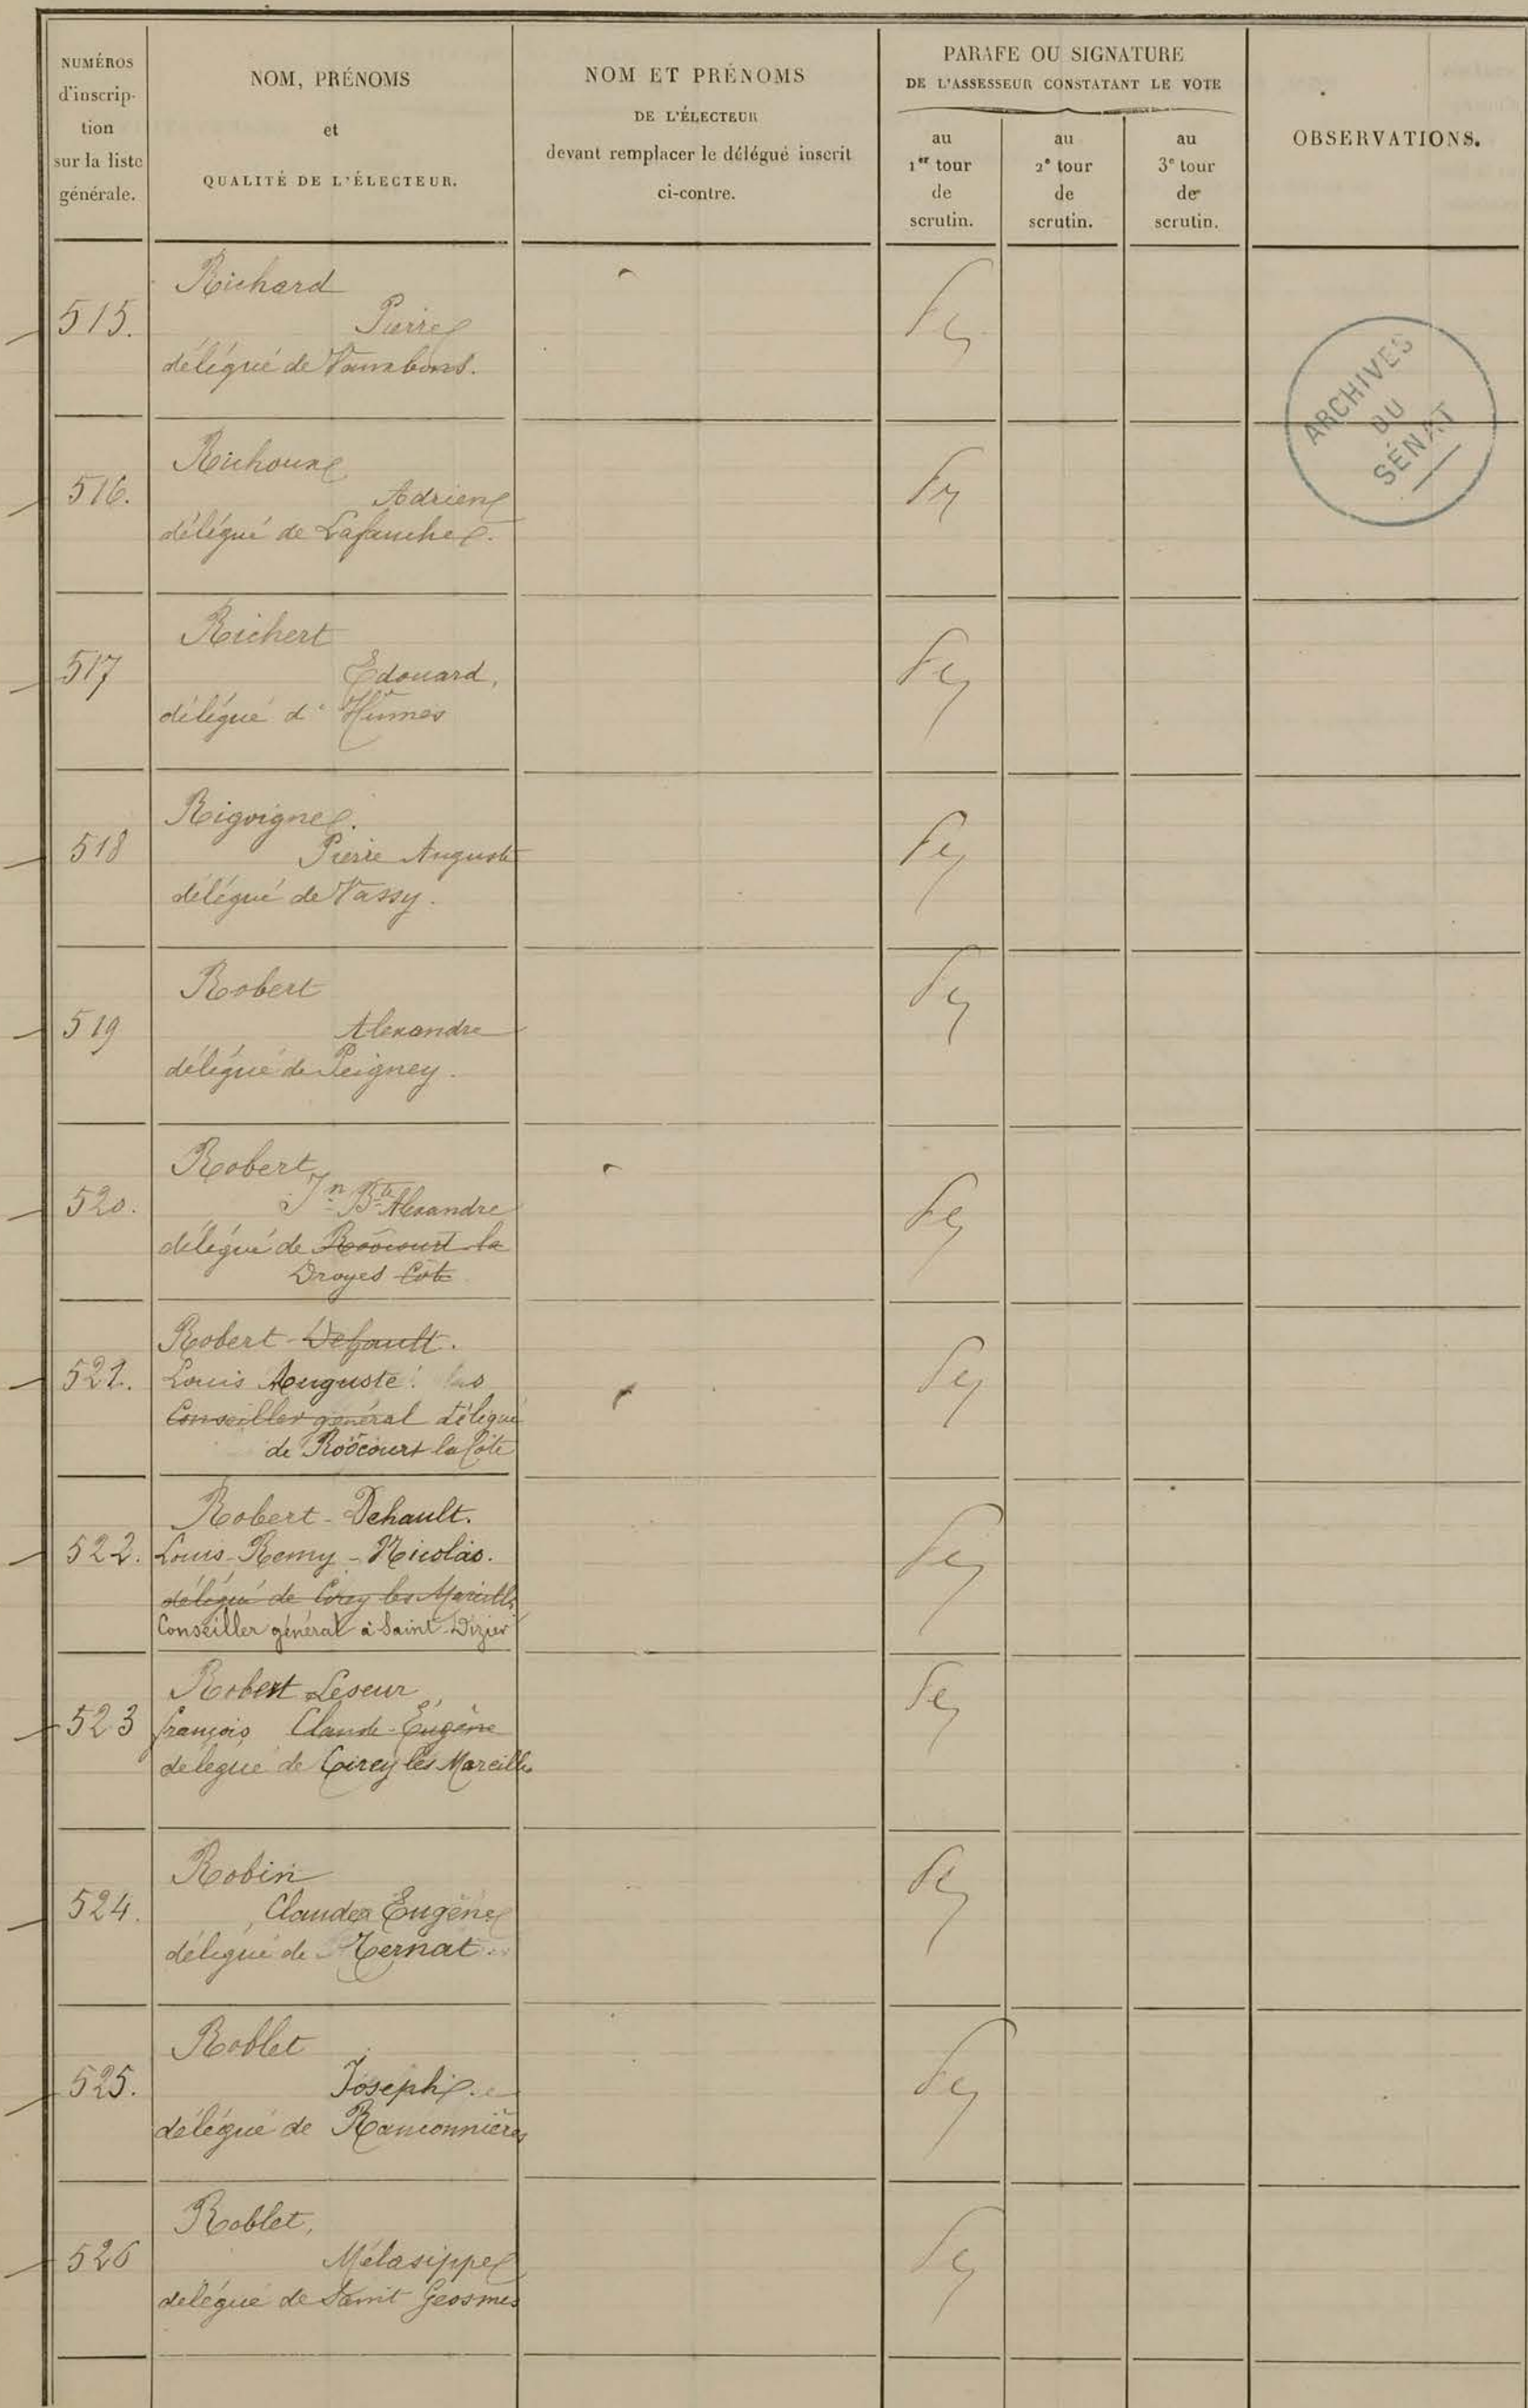 NUMÉROS
d'inscrip-
tion
sur la liste
générale.
NOM, PRÉNOMS
et
QUALITÉ DE L'ÉLECTEUR.
NOM ET PRÉNOMS
DE L'ÉLECTEUR
devant remplacer le délégué inscrit
ci-contre.
PARAFE OU SIGNATURE
DE L'ASSESSEUR CONSTATANT LE VOTE
au
1er tour
de
scrutin.
au
2e tour
de
scrutin.
au
3e tour
de
scrutin.
OBSERVATIONS.
Richard
515. Pierre
délégué de Vauxbons.
ARCHIVES
DU
SÉNAT
Richoux
516. Adrien
délégué de Lafauche.
Richert
517 Edouard,
délégué d' Humes
Rigoigne.
518 Pierre Auguste
délégué de Vassy.
Robert
519 Alexandre
délégué de Peigney.
Robert,
520. Jn Bte Alexandre
délégué de Roôcourt la
Droyes Côte
Robert-Dehault.
521. Louis Auguste
Conseiller général délégué
de Roôcourt la Côte
Robert-Dehault.
522. Louis-Remy-Nicolas.
délégué de Cirey les Mareilles
Conseiller général à Saint-Dizier
Robert Leseur
523 françois Claude-Eugène
délégué de Cirey les Mareilles
Robin
524. Claude Eugène
délégué de Ternat
Roblet
525. Joseph
délégué de Ranconnières
Roblet,
526 Mélasippe
délégué de Saint Geosmes